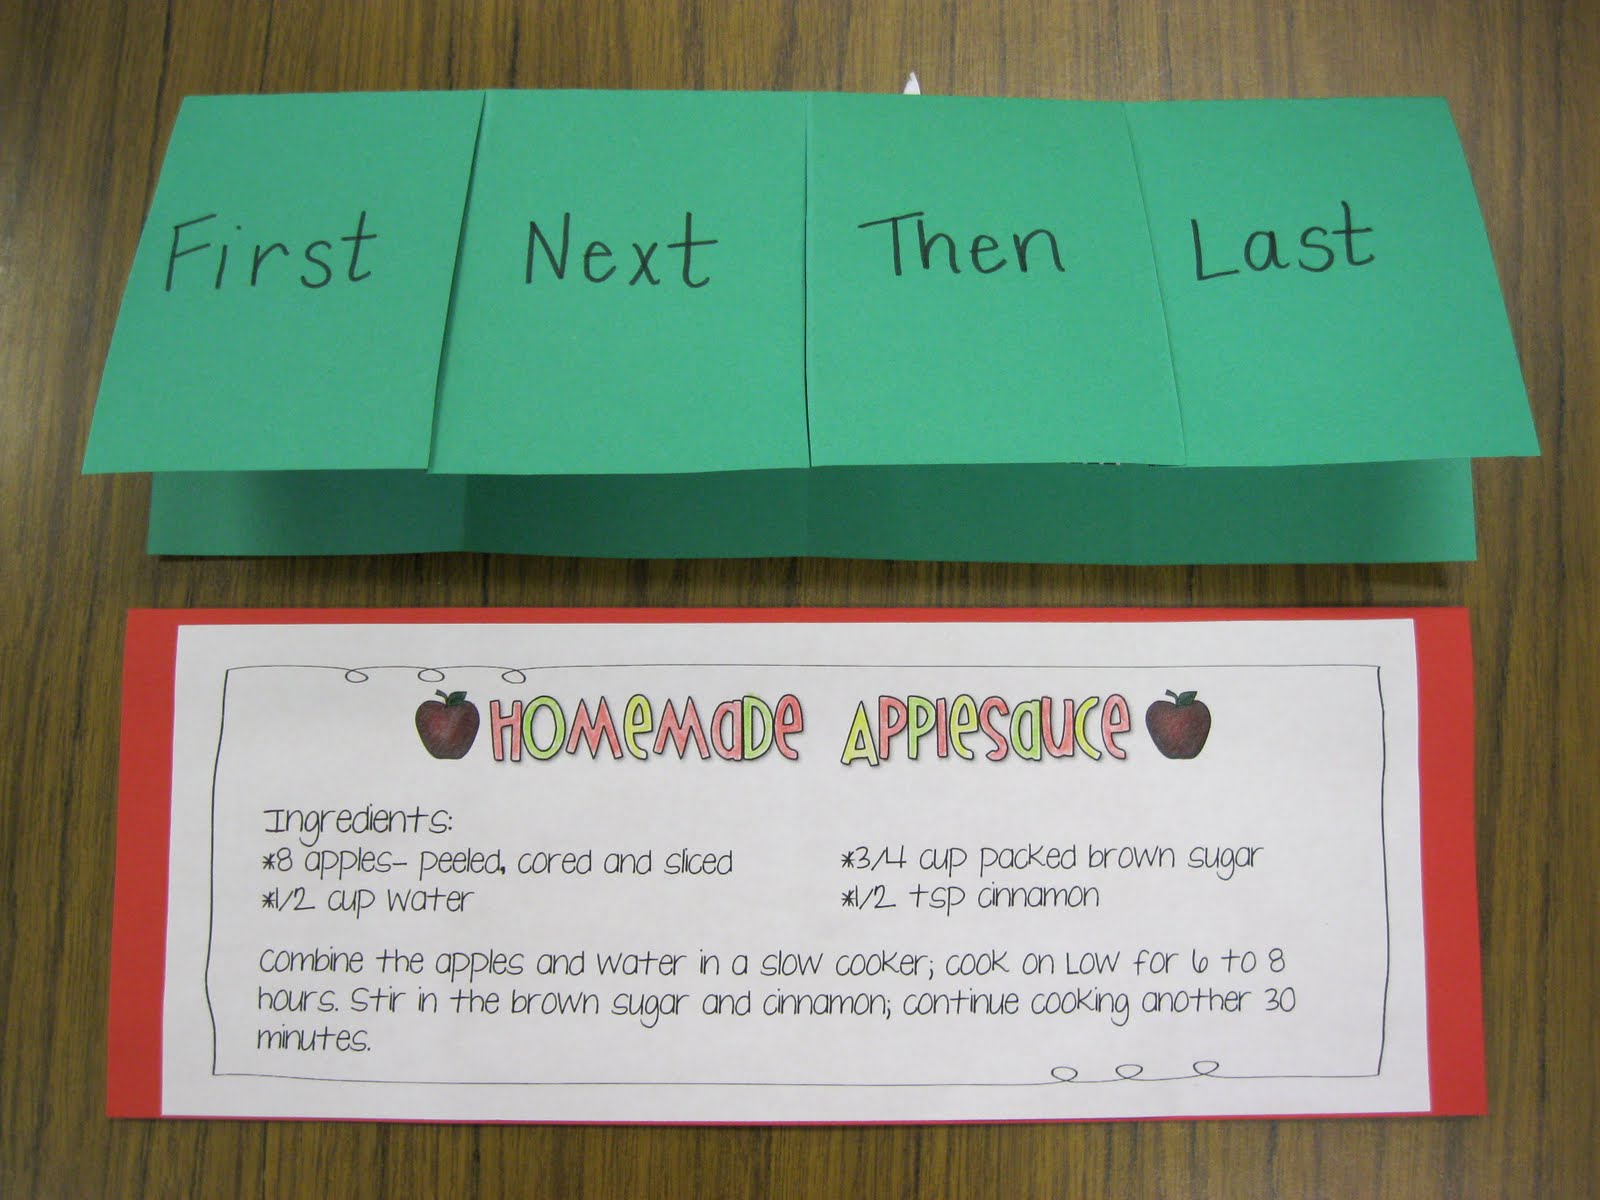 First Next Then Last
Homemade Applesauce
Ingredients:
*8 apples- peeled, cored and sliced *3/4 cup packed brown sugar
*1/2 cup water *1/2 tsp cinnamon
Combine the apples and water in a slow cooker; cook on LOW for 6 to 8
hours. Stir in the brown sugar and cinnamon; continue cooking another 30
minutes.